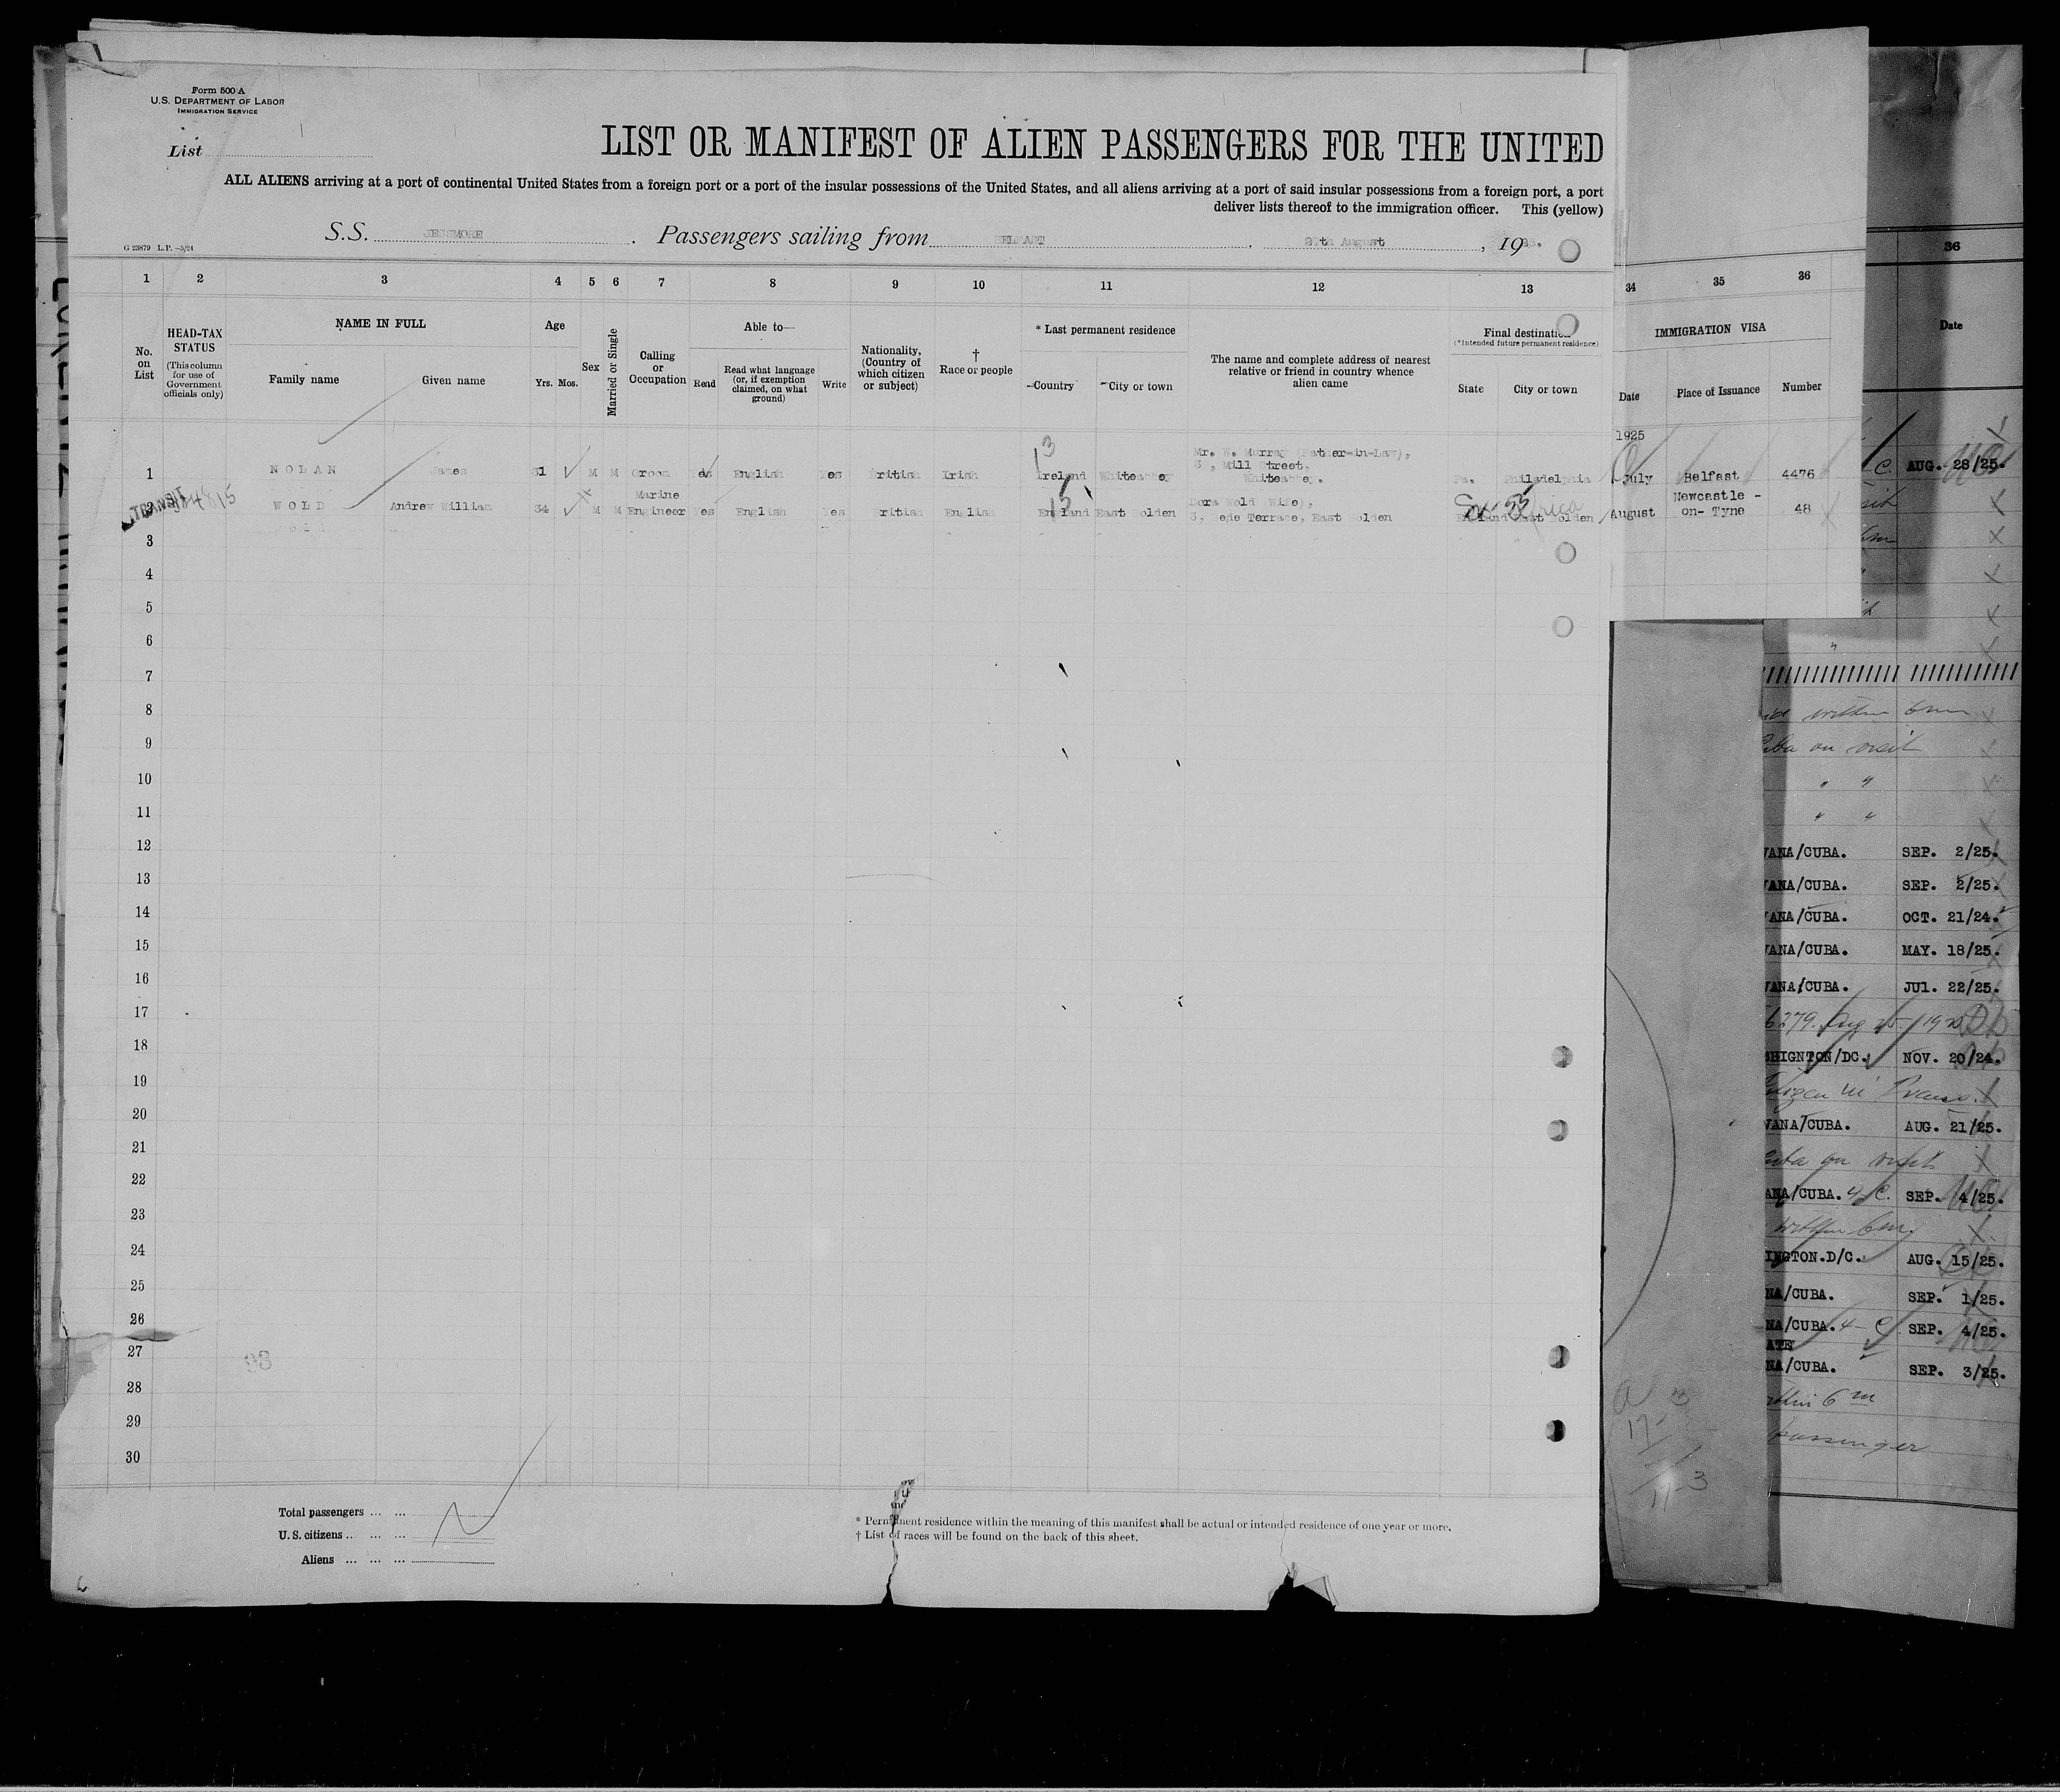 Form 500 A
U.S. DEPARTMENT OF LABOR
IMMIGRATION SERVICE
List
LIST OR MANIFEST OF ALIEN PASSENGERS FOR THE UNITED
ALL ALIENS arriving at a port of continental United States from a foreign port or a port of the insular possessions of the United States, and all aliens arriving at a port of said insular possessions from a foreign port, a port
deliver lists thereof to the immigration officer. This (yellow)
S.S. Passengers sailing from BELFAST, 27th August, 19
G 23879 L.P. —5/24
1 2 3 4 5 6 7 8 9 10 11 12 13 34 35 36
No. on List
HEAD-TAX STATUS
(This column for use of Government officials only)
NAME IN FULL
Family name Given name
Age
Yrs. Mos.
Sex
Married or Single
Calling or Occupation
Able to—
Read
Read what language (or, if exemption claimed, on what ground)
Write
Nationality, (Country of which citizen or subject)
† Race or people
* Last permanent residence
Country City or town
The name and complete address of nearest relative or friend in country whence alien came
Final destination
(*Intended future permanent residence)
State City or town
IMMIGRATION VISA
Date Place of Issuance Number
36
Date
1925
Mr. W. Murray (Father-in-Law),
Mill Street,
1 NOLAN James 31 M M Groom Yes English Yes British Irish Ireland Whiteabbey Whiteabbey. Pa. Philadelphia July Belfast 4476
TRANSIT
2 WOLD Andrew William 34 M M Marine Engineer Yes English Yes British English England East Bolden Dora Wold (Wife),
Terrace, East Bolden England East Bolden August Newcastle - on- Tyne 48
3
4
5
6
7
8
9
10
11
12
13
14
15
16
17
18
19
20
21
22
23
24
25
26
27
28
29
30
93
Total passengers ... ...
U.S. citizens .. ... ...
Aliens ... ... ...
* Permanent residence within the meaning of this manifest shall be actual or intended residence of one year or more.
† List of races will be found on the back of this sheet.
C. AUG. 28/25.
within 6m
Cuba on visit
" "
" "
VANA/CUBA. SEP. 2/25.
VANA/CUBA. SEP. 2/25.
VANA/CUBA. OCT. 21/24.
VANA/CUBA. MAY. 18/25.
VANA/CUBA. JUl. 22/25.
SHIGNTON/DC. NOV. 20/24.
VANA/CUBA. AUG. 21/25.
Cuba on visit
ANA/CUBA. 4 C. SEP. 4/25.
within 6m.
INGTON.D/C. AUG. 15/25.
NA/CUBA. SEP. 1/25.
NA/CUBA. 4- C SEP. 4/25.
ATE
NA/CUBA. SEP. 3/25.
within 6m
passenger